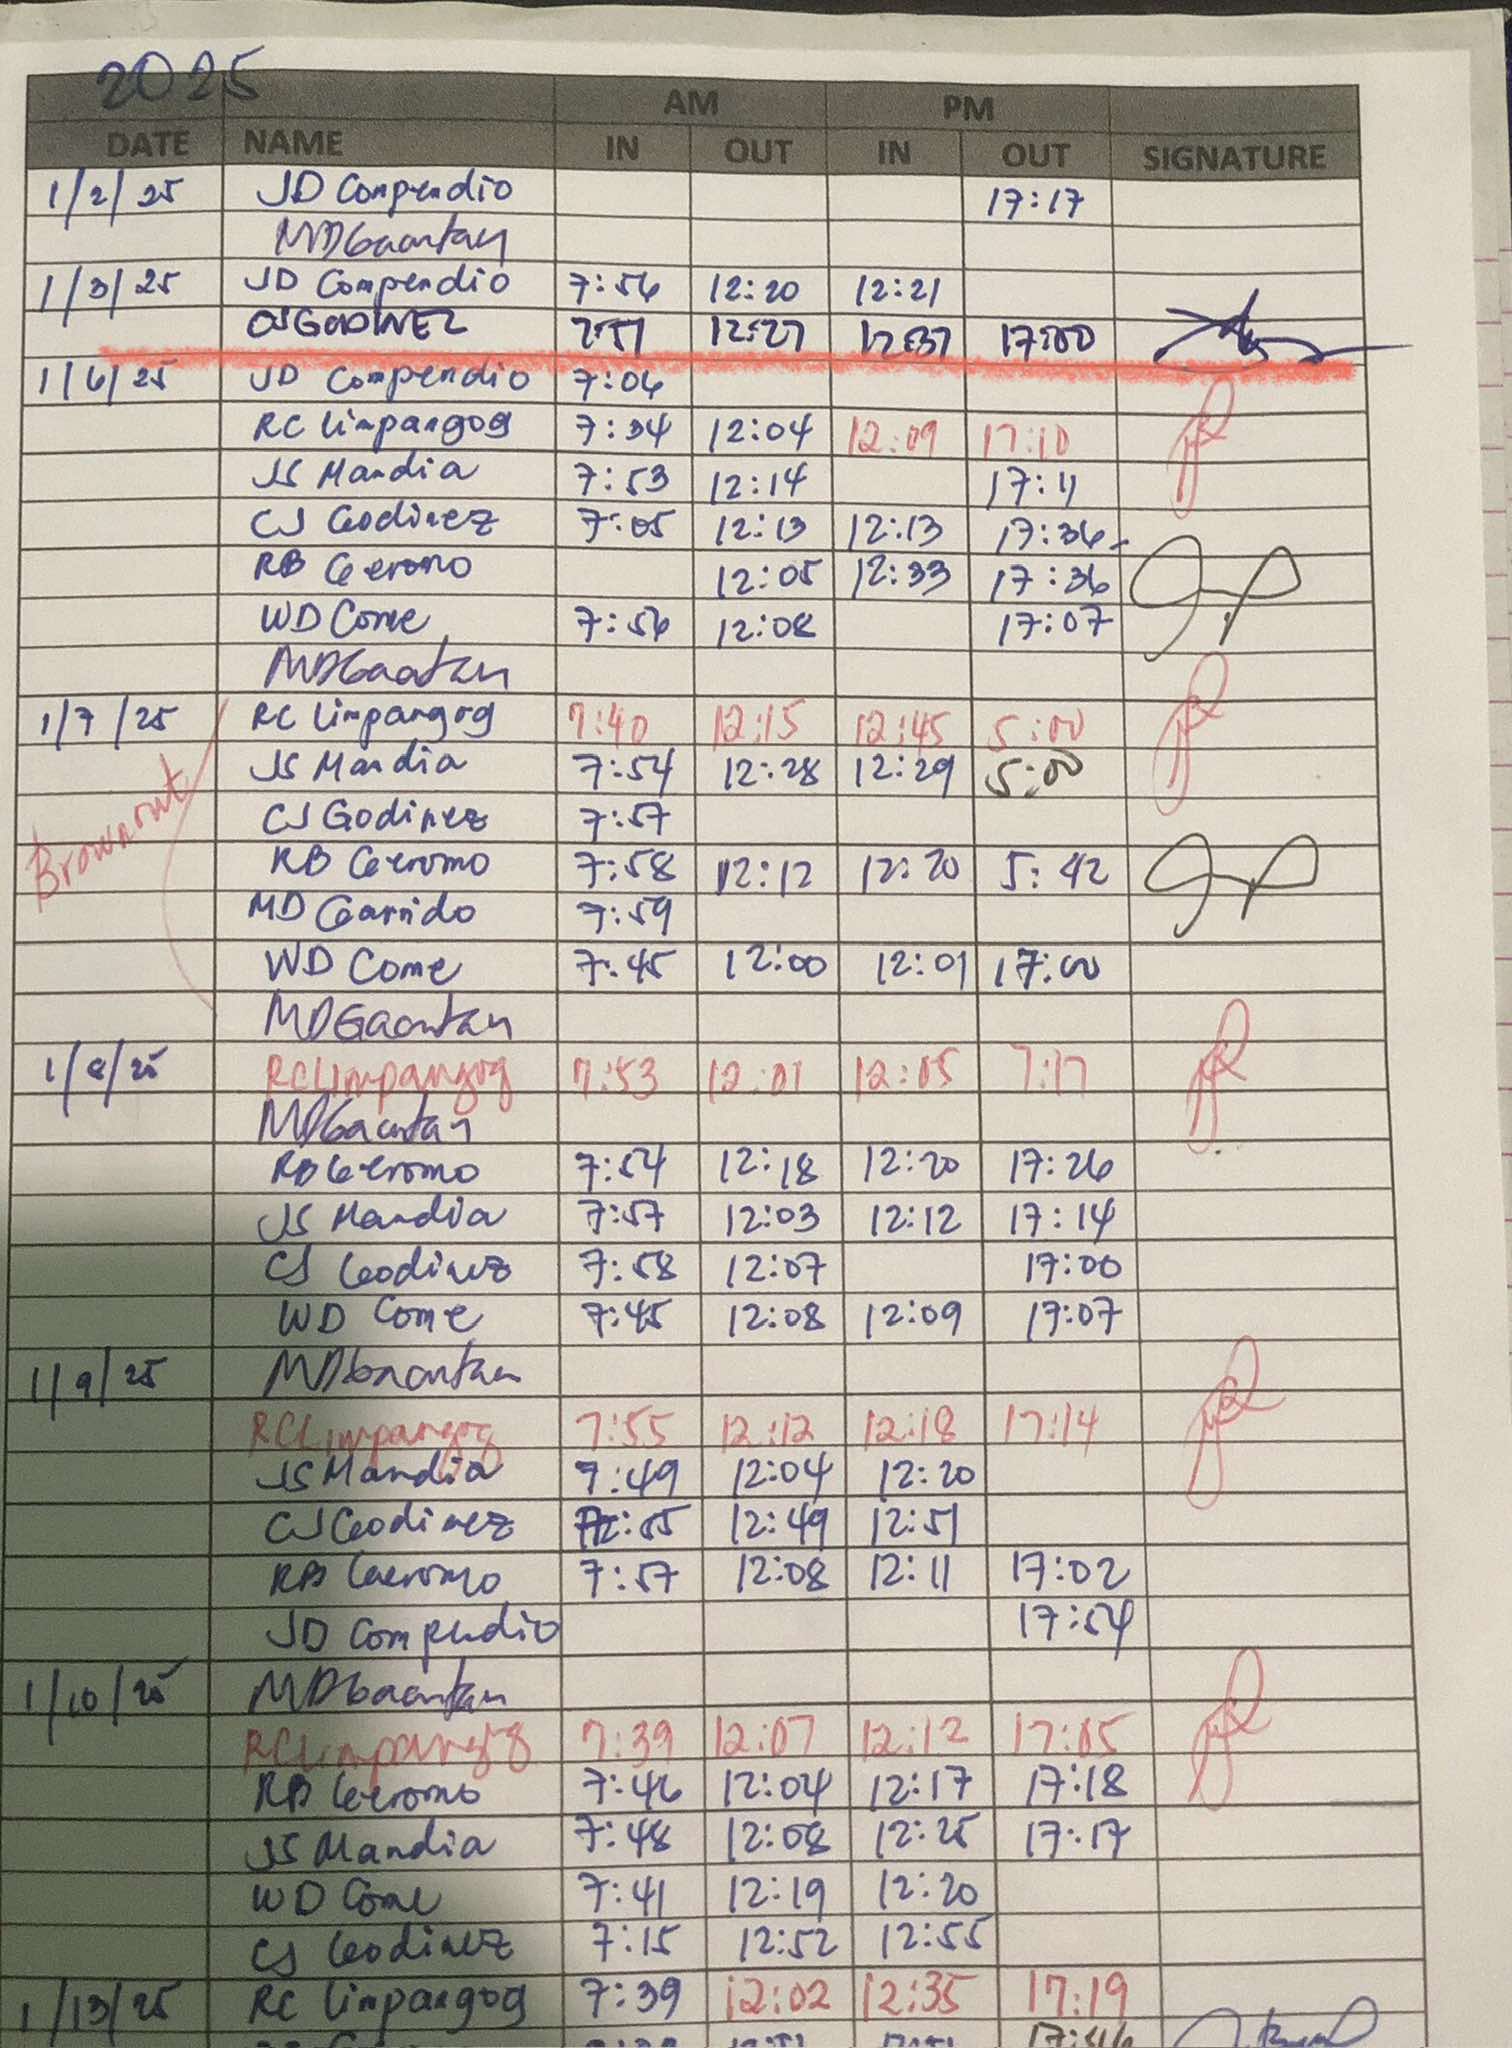 2025
AM PM
DATE NAME IN OUT IN OUT SIGNATURE
1/2/25 JD Compendio 17:17
MDGaantan
1/3/25 JD Compendio 7:56 12:20 12:21
CJ GODINEZ 7:57 12:27 12:37 17:00
1/6/25 JD Compendio 7:06
RC Limpangog 7:34 12:04 12:09 17:10
JS Mandia 7:53 12:14 17:11
CJ Godinez 7:05 12:13 12:13 17:36
RB Geromo 12:05 12:33 17:36
WD Come 7:56 12:08 17:07
MDGaantan
1/7/25 RC Limpangog 7:40 12:15 12:45 5:00
JS Mandia 7:54 12:28 12:29 5:00
CJ Godinez 7:57
Brownout
RB Geromo 7:58 12:12 12:20 5:42
MD Garrido 7:59
WD Come 7:45 12:00 12:01 17:00
MDGaantan
1/8/25 RCLimpangog 7:53 12:01 12:05 7:17
MDGaantan
RB Geromo 7:54 12:18 12:20 17:26
JS Mandia 7:57 12:03 12:12 17:14
CJ Godinez 7:58 12:07 17:00
WD Come 7:45 12:08 12:09 17:07
1/9/25 MDGaantan
RCLimpangog 7:55 12:12 12:18 17:14
JS Mandia 7:49 12:04 12:20
CJ Godinez :55 12:49 12:51
RB Geromo 7:57 12:08 12:11 17:02
JD Compendio 17:54
1/10/25 MDGaantan
RCLimpangog 7:39 12:07 12:12 17:05
RB Geromo 7:46 12:04 12:17 17:18
JS Mandia 7:48 12:08 12:25 17:17
WD Come 7:41 12:19 12:20
CJ Godinez 7:15 12:52 12:55
1/13/25 RC Limpangog 7:39 12:02 12:35 17:19
17:46